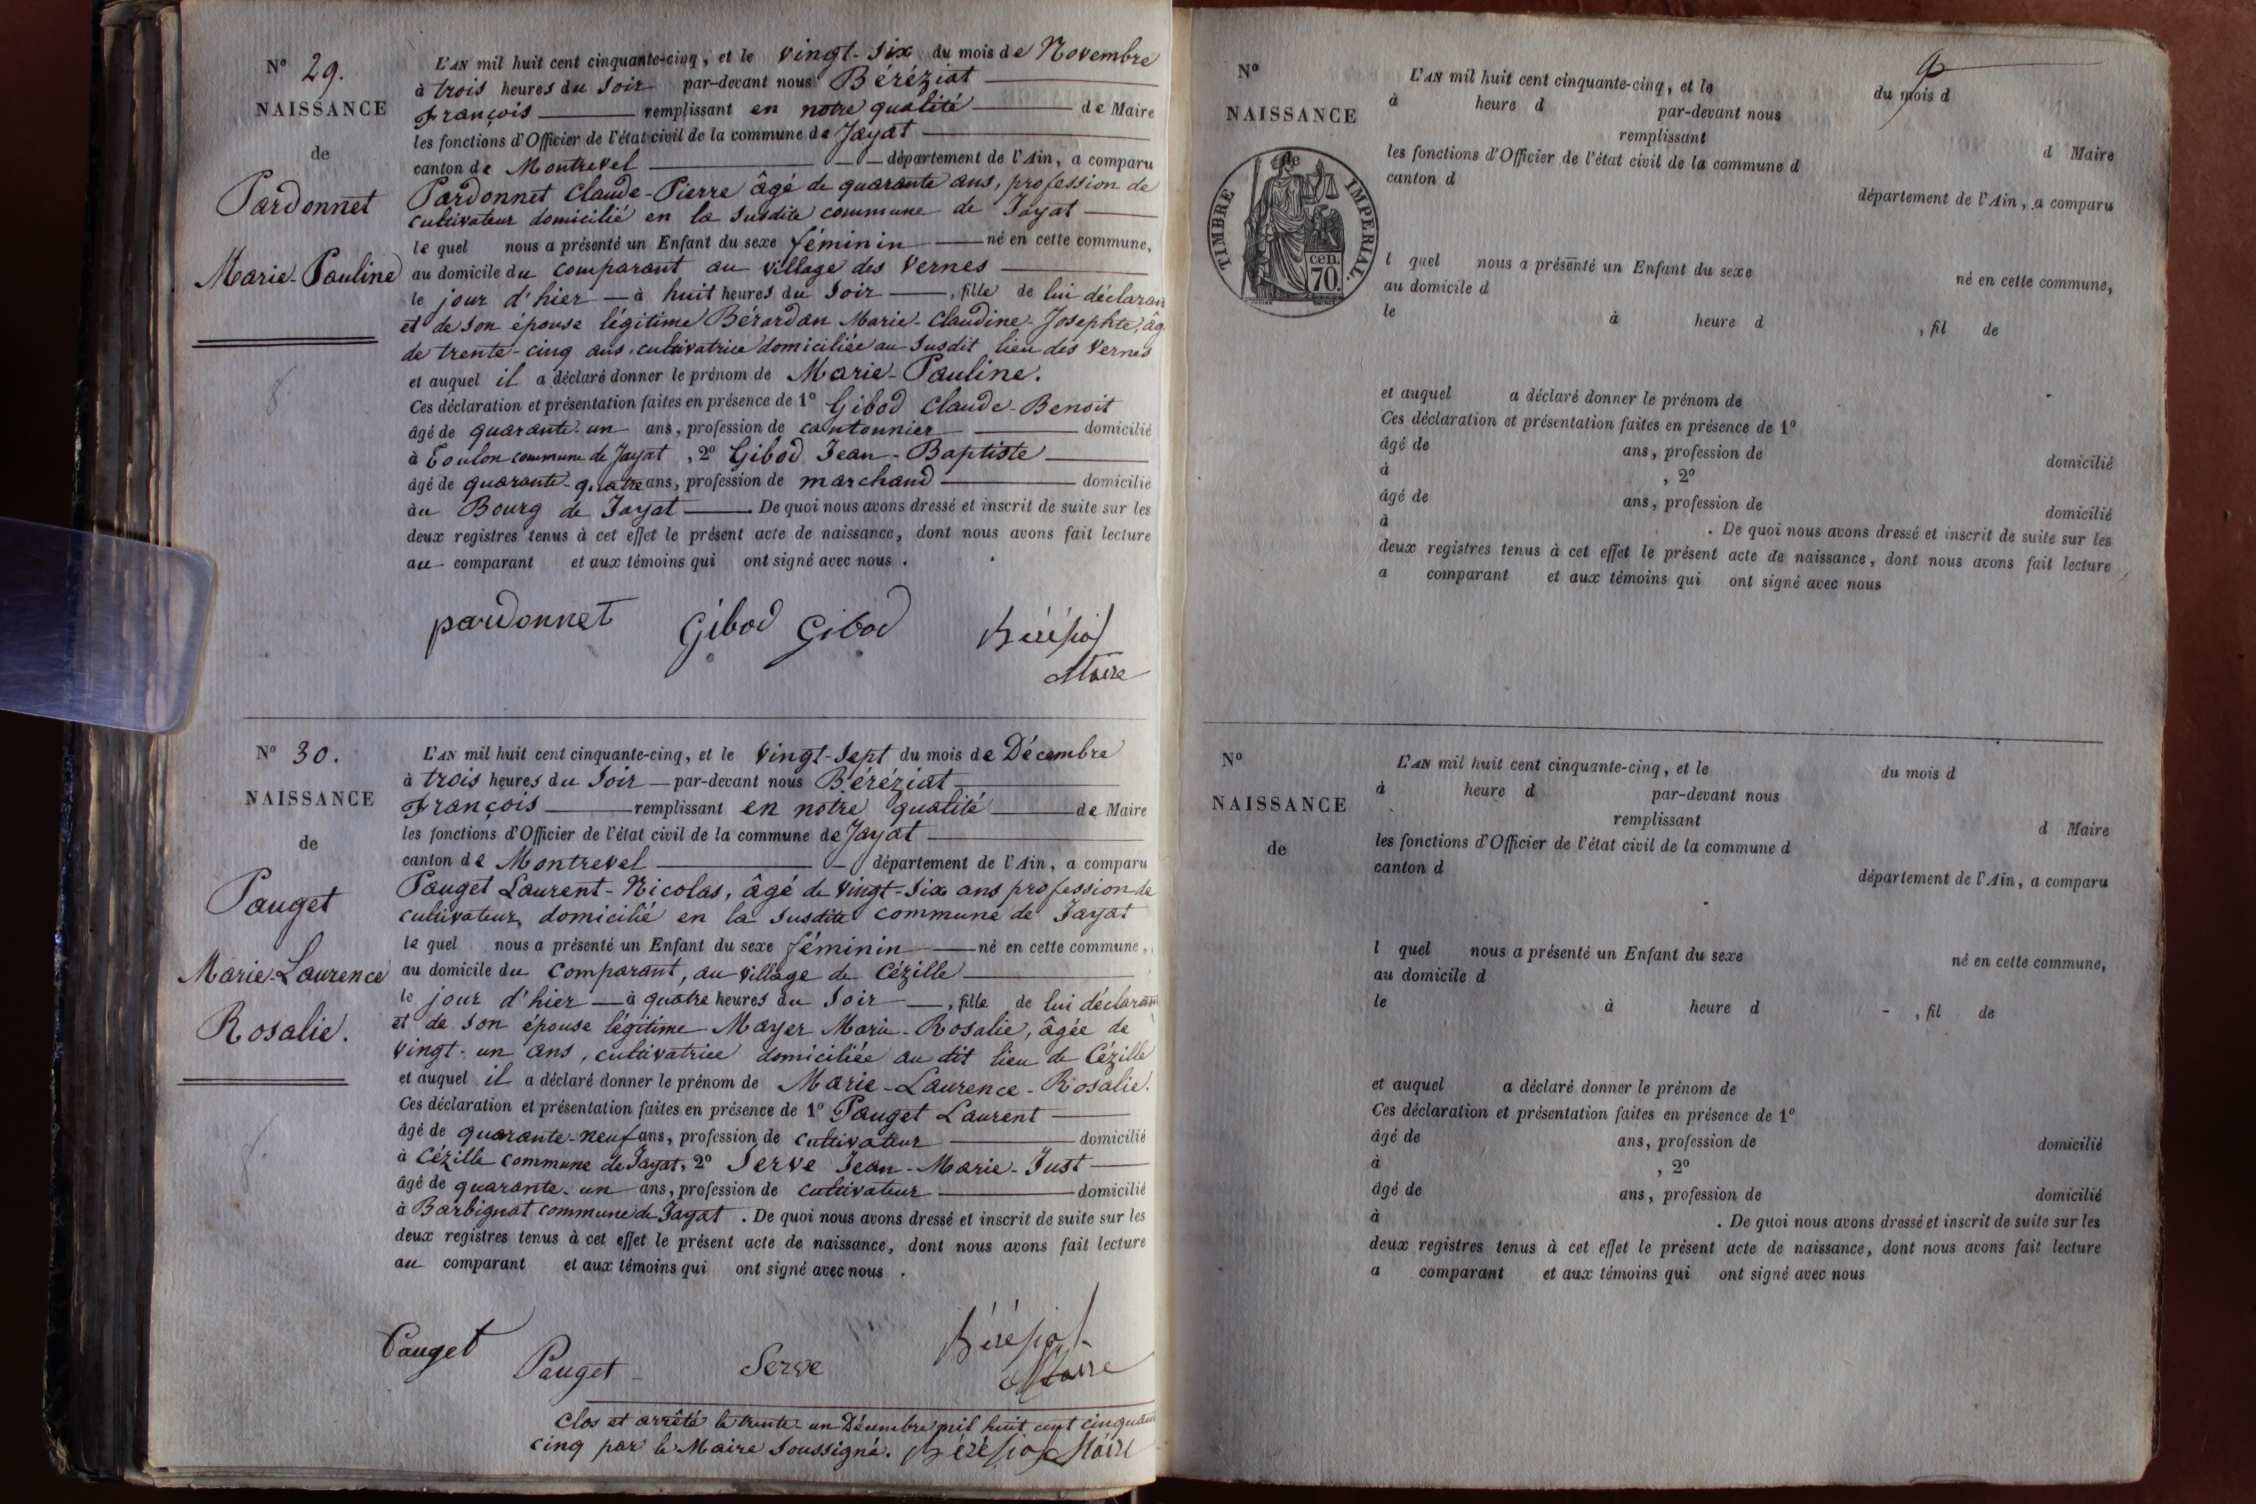 Nº 29.
NAISSANCE
de
Pardonnet
Marie-Pauline
L'AN mil huit cent cinquante-cinq, et le vingt-six du mois de Novembre
à trois heures du soir par-devant nous Béréziat
François remplissant en notre qualité de Maire
les fonctions d'Officier de l'état civil de la commune de Jayat
canton de Montrevel département de l'Ain, a comparu
Pardonnet Claude-Pierre âgé de quarante ans, profession de
cultivateur domicilié en la susdite commune de Jayat
le quel nous a présenté un Enfant du sexe féminin né en cette commune,
au domicile du comparant au village des Vernes
le jour d'hier à huit heures du soir, fille de lui déclarant
et de son épouse légitime Bérardan Marie-Claudine-Josephte, âg
de trente-cinq ans, cultivatrice domiciliée au susdit lieu des Vernes
et auquel il a déclaré donner le prénom de Marie-Pauline.
Ces déclaration et présentation faites en présence de 1º Gibod Claude-Benoit
âgé de quarante-un ans, profession de cantonnier domicilié
à Eoulon commune de Jayat, 2º Gibod Jean-Baptiste
âgé de quarante-quatre ans, profession de marchand domicilié
au Bourg de Jayat. De quoi nous avons dressé et inscrit de suite sur les
deux registres tenus à cet effet le présent acte de naissance, dont nous avons fait lecture
au comparant et aux témoins qui ont signé avec nous.
pardonnet Gibod Gibod Béréziat
Maire
Nº 30.
NAISSANCE
de
Pauget
Marie-Laurence
Rosalie.
L'AN mil huit cent cinquante-cinq, et le vingt-sept du mois de Décembre
à trois heures du soir par-devant nous Béréziat
François remplissant en notre qualité de Maire
les fonctions d'Officier de l'état civil de la commune de Jayat
canton de Montrevel département de l'Ain, a comparu
Pauget Laurent-Nicolas, âgé de vingt-six ans profession de
cultivateur, domicilié en la susdite commune de Jayat
le quel nous a présenté un Enfant du sexe féminin né en cette commune,
au domicile du comparant, au village de Cézille
le jour d'hier à quatre heures du soir, fille de lui déclarant
et de son épouse légitime Mayer Marie-Rosalie, âgée de
vingt-un ans, cultivatrice domiciliée au dit lieu de Cézille
et auquel il a déclaré donner le prénom de Marie-Laurence-Rosalie.
Ces déclaration et présentation faites en présence de 1º Pauget Laurent
âgé de quarante-neuf ans, profession de cultivateur domicilié
à Cézille commune de Jayat, 2º Serve Jean-Marie-Just
âgé de quarante-un ans, profession de cultivateur domicilié
à Barbignat commune de Jayat. De quoi nous avons dressé et inscrit de suite sur les
deux registres tenus à cet effet le présent acte de naissance, dont nous avons fait lecture
au comparant et aux témoins qui ont signé avec nous.
Pauget Pauget Serve Béréziat
Maire
Clos et arrêté le trente-un Décembre mil huit cent cinquante
cinq par le Maire soussigné. Béréziat Maire
9
Nº
NAISSANCE
de
TIMBRE IMPERIAL.
cen.
70.
L'AN mil huit cent cinquante-cinq, et le du mois d
à heure d par-devant nous
remplissant d Maire
les fonctions d'Officier de l'état civil de la commune d
canton d département de l'Ain, a comparu
l quel nous a présenté un Enfant du sexe né en cette commune,
au domicile d
le à heure d , fil de
et auquel a déclaré donner le prénom de
Ces déclaration et présentation faites en présence de 1º
âgé de ans, profession de domicilié
à , 2º
âgé de ans, profession de domicilié
à . De quoi nous avons dressé et inscrit de suite sur les
deux registres tenus à cet effet le présent acte de naissance, dont nous avons fait lecture
a comparant et aux témoins qui ont signé avec nous
Nº
NAISSANCE
de
L'AN mil huit cent cinquante-cinq, et le du mois d
à heure d par-devant nous
remplissant d Maire
les fonctions d'Officier de l'état civil de la commune d
canton d département de l'Ain, a comparu
l quel nous a présenté un Enfant du sexe né en cette commune,
au domicile d
le à heure d , fil de
et auquel a déclaré donner le prénom de
Ces déclaration et présentation faites en présence de 1º
âgé de ans, profession de domicilié
à , 2º
âgé de ans, profession de domicilié
à . De quoi nous avons dressé et inscrit de suite sur les
deux registres tenus à cet effet le présent acte de naissance, dont nous avons fait lecture
a comparant et aux témoins qui ont signé avec nous